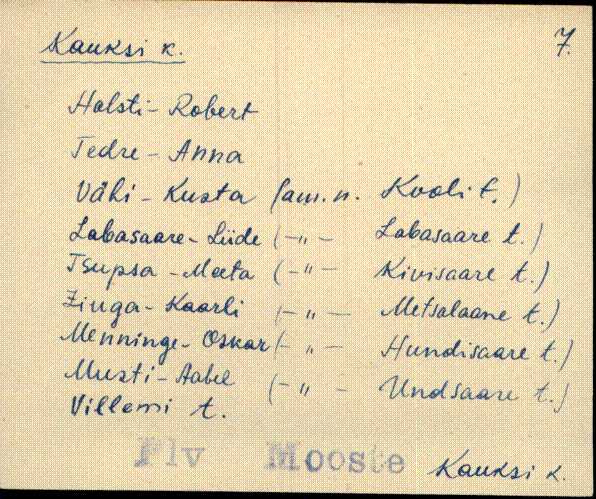 Kauksi k. 7.
Halsti - Robert
Tedre - Anna
Vähi - Kusta (am. n. Kooli t.)
Labasaare - Liide ( - " - Labasaare t.)
Tsupsa - Meeta ( - " - Kivisaare t.)
Zinga - Kaarli ( - " - Metsalaane t.)
Menninge - Oskar ( - " - Hundisaare t.)
Musti - Aabel ( - " - Undsaare t.)
Villemi t.
Plv Mooste Kauksi k.